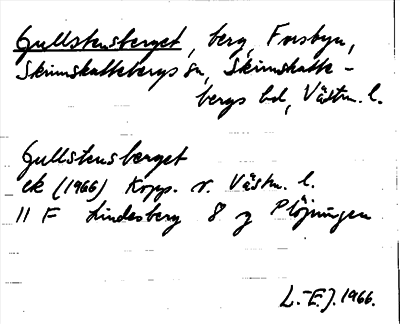 Gullstensberget, berg, Forsbyn,
Skinnskattebergs sn, Skinnskatte-
bergs bd, Västm. l.
Gullstensberget
ek (1966) Kopp. o. Västm. l.
11 F Lindesberg 8 g Plöjningen
L.-E.J. 1966.